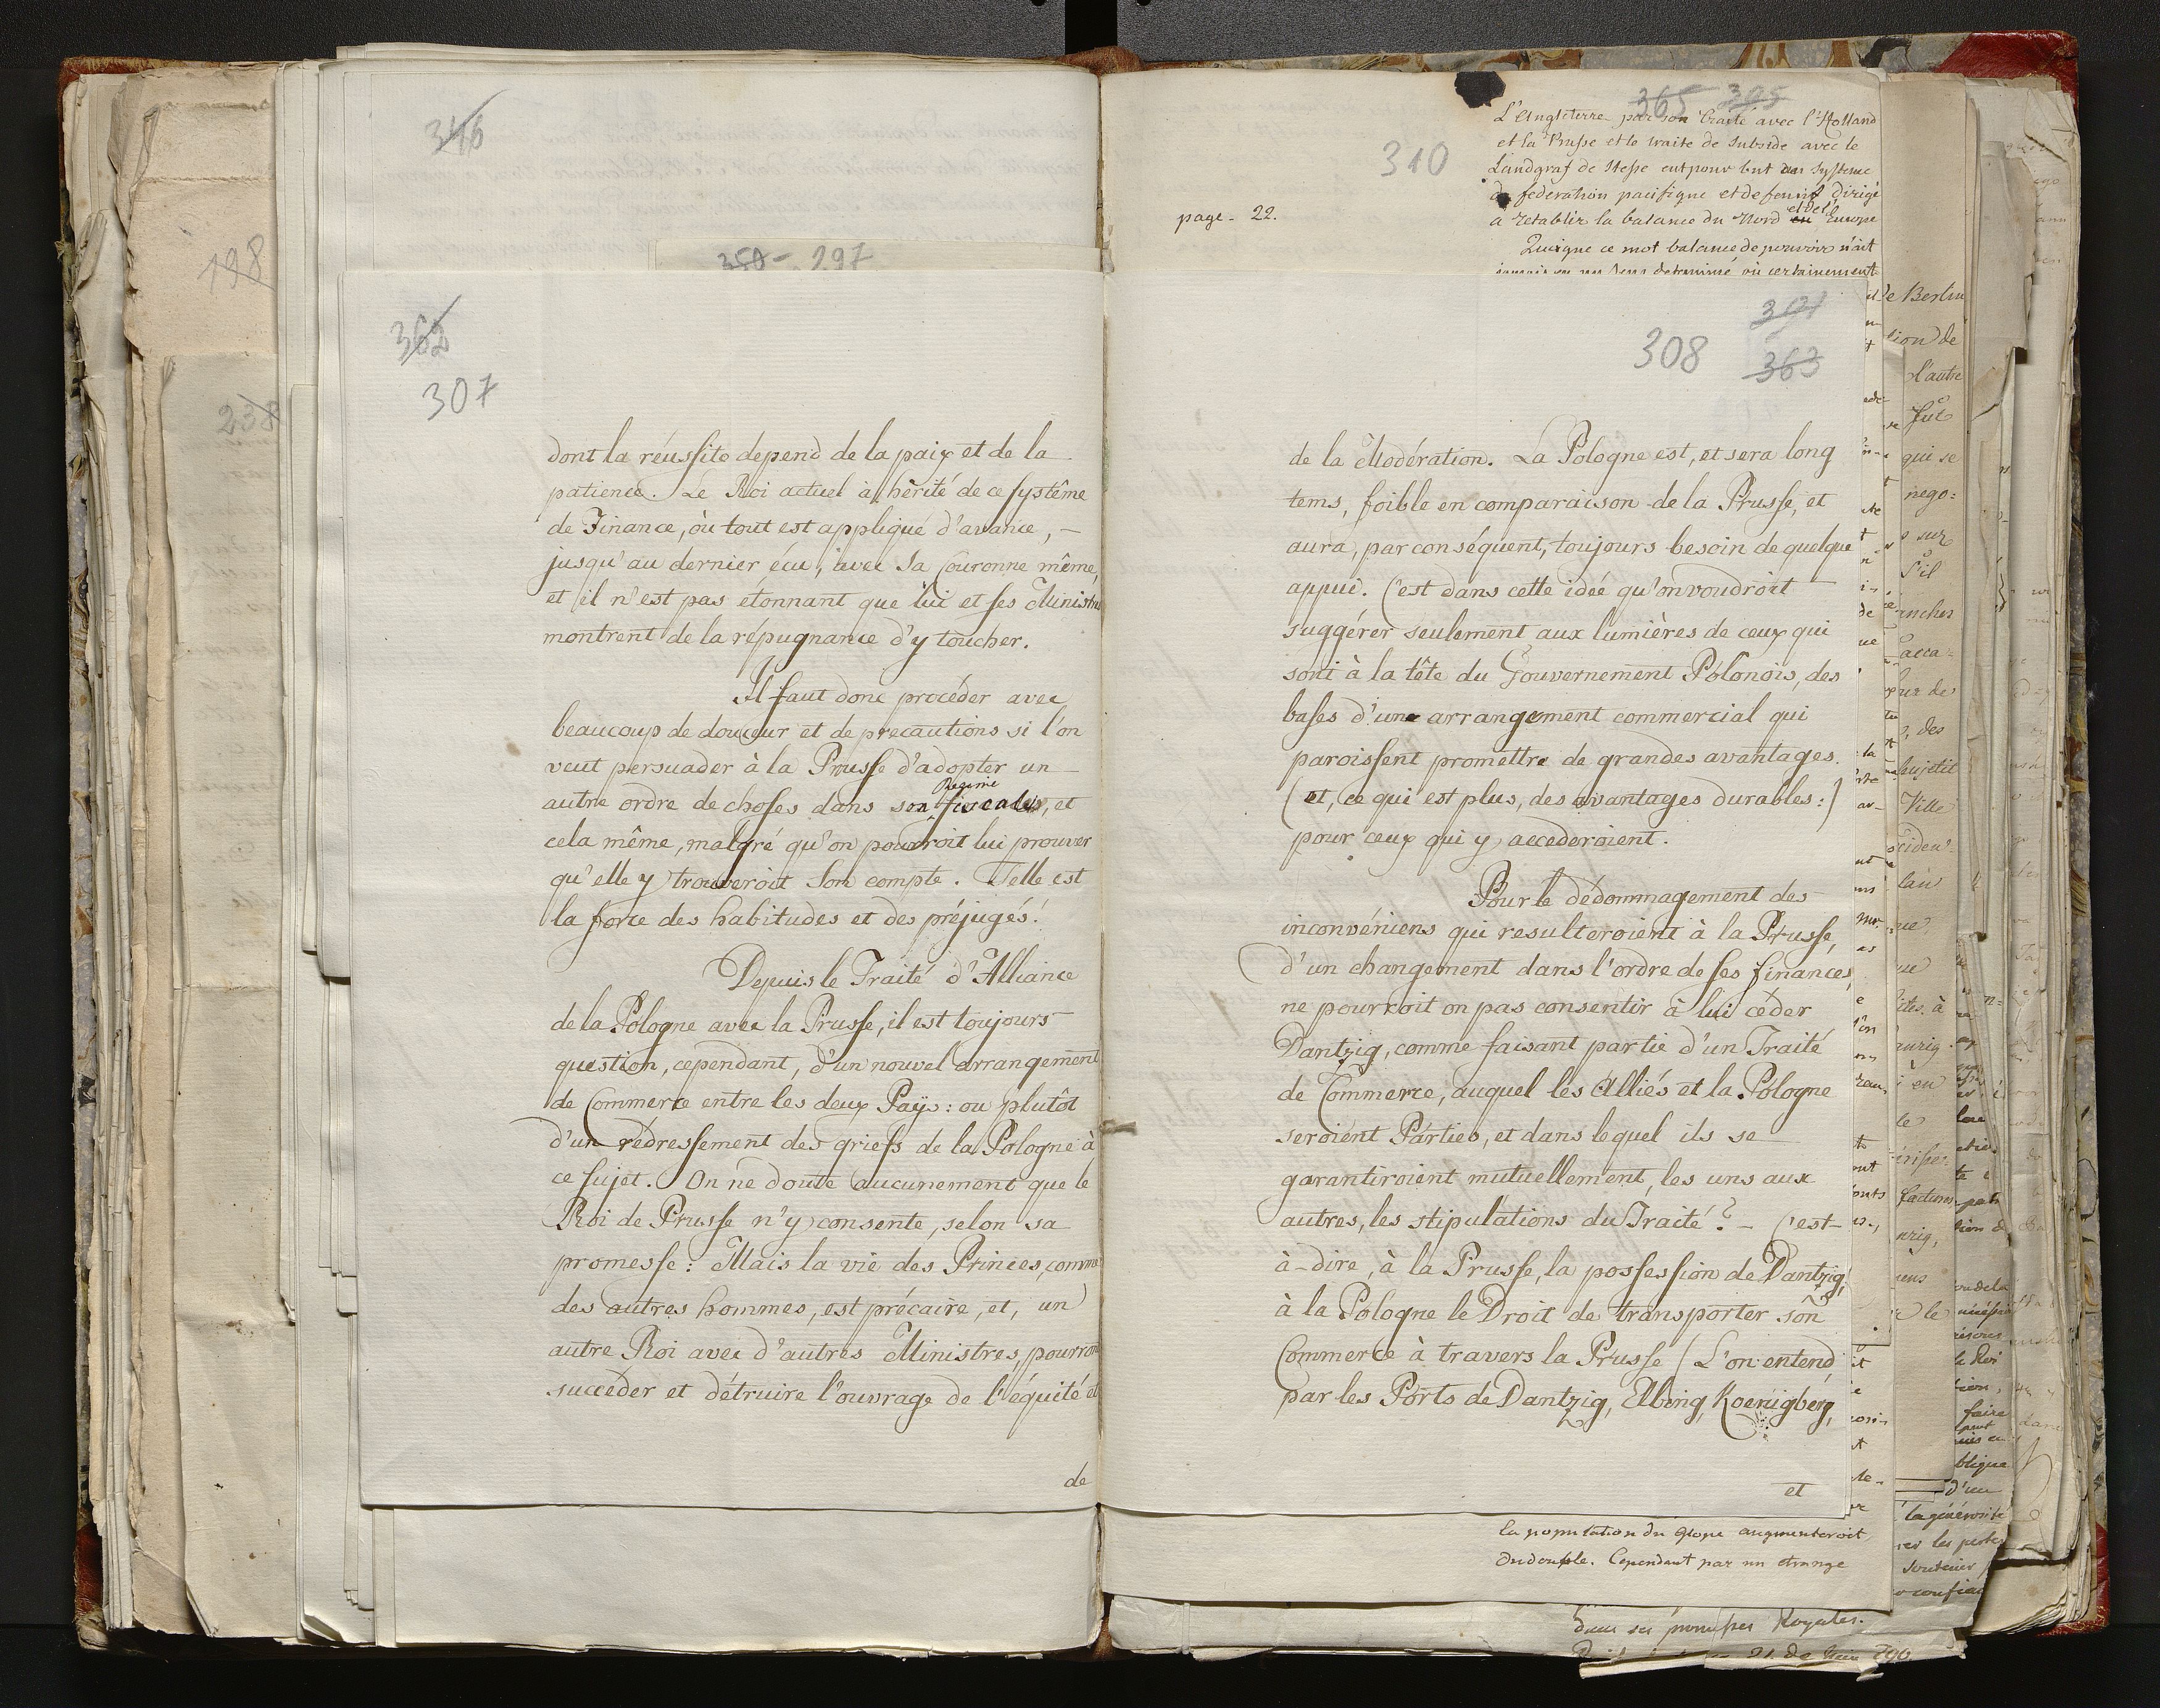 346
350 - 297
362
307
dont la réussite depend de la paix et de la
patience. Le Roi actuel à hérité de ce systême
de Finance, où tout est appliqué d'avance, -
jusqu'au dernier écu, avec Sa Couronne même,
et il n'est pas étonnant que lui et ses Ministres
montrent de la répugnance d'y toucher.
Il faut donc procéder avec
beaucoup de douceur et de precautions si l'on
veut persuader à la Prusse d'adopter un
autre ordre de choses dans son Regime fiscale, et
cela même, malgré qu'on pourroit lui prouver
qu'elle y trouveroit Son compte. Telle est
la force des habitudes et des préjugés!
Depuis le Traité d'Alliance
de la Pologne avec la Prusse, il est toujours
question, cependant, d'un nouvel arrangement
de Commerce entre les deux Païs: ou plutôt
d'un redressement des griefs de la Pologne à
ce sujet. On ne doute aucunement que le
Roi de Prusse n'y consente, selon sa
promesse: Mais la vie des Princes, comme
des autres hommes, est précaire, et, un
autre Roi avec d'autres Ministres, pourron
succéder et détruire l'ouvrage de l'équité et
de
198
238
365 395
310
page - 22.
L'Angleterre par son traité avec l'Holland
et la Prusse et le traite de Subside avec le
Landgraf de Hesse eut pour but un Systeme
de federation pacifique et defensif dirigé
a retablir la balance du Nord et de l'Europe
Quoique ce mot balance de pouvoir n'ait
determiné où certainement
301
308
363
de la Modération. La Pologne est, et sera long
tems, foible en comparaison de la Prusse, et
aura, par conséquent, toujours besoin de quelque
appui. C'est dans cette idée qu'on voudroit
suggérer seulement aux lumières de ceux qui
sont à la tête du Gouvernement Polonois, des
bases d'une arrangement commercial qui
paroissent promettre de grandes avantages.
(et, ce qui est plus, des avantages durables:)
pour ceux qui y accederoient.
Pour le dédommagement des
inconvéniens qui resulteroient à la Prusse,
d'un changement dans l'ordre de ses finances,
ne pourroit on pas consentir à lui céder
Dantzig, comme faisant partie d'un Traité
de Commerce, auquel les Alliés et la Pologne
seroient Parties, et dans lequel ils se
garantiroient mutuellement, les uns aux
autres, les stipulations du Traité? - C'est-
à-dire, à la Prusse, la possession de Dantzig,
à la Pologne le Droit de transporter son
Commerce à travers la Prusse (L'on entend
par les Ports de Dantzig, Elbing, Koenigberg,
et
la population du Globe augmenteroit
du double. Cependant par un etrange
dans ses promesses Royales.
21 de Juin 790
de Berlin
tion de
l'autre
fut
qui se
nego=
sur
S'il
des
Ville